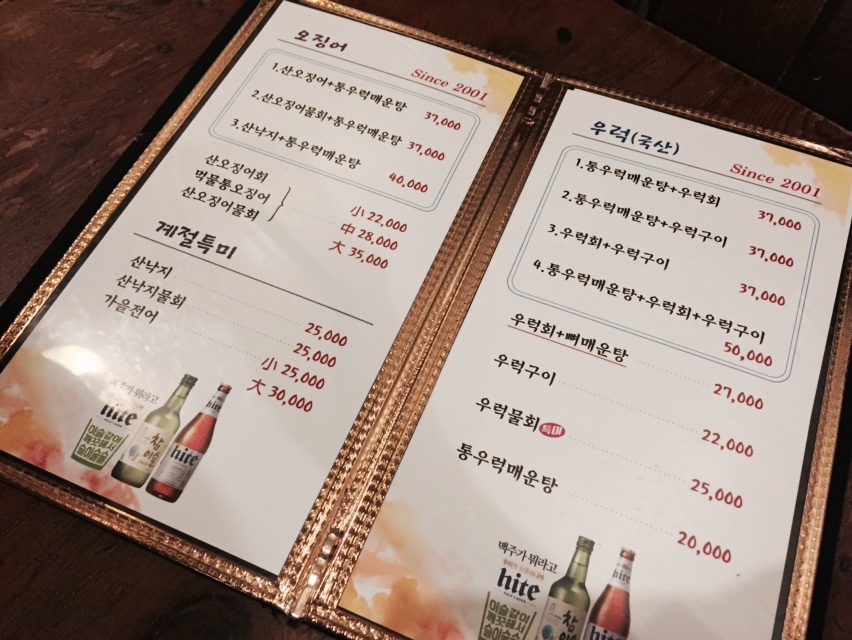 오징어
Since 2001
1.산오징어+통우럭매운탕 37,000
2.산오징어물회+통우럭매운탕 37,000
3.산낙지+통우럭매운탕 40,000
산오징어회
먹물통오징어
산오징어물회
小 22,000
中 28,000
大 35,000
계절특미
산낙지 25,000
산낙지물회 25,000
가을전어 小 25,000
大 30,000
맥주가 뭐라고
hite
이슬같이
깨끗해서
술이술술
참이슬
hite
우럭(국산)
Since 2001
1.통우럭매운탕+우럭회 37,000
2.통우럭매운탕+우럭구이 37,000
3.우럭회+우럭구이 37,000
4.통우럭매운탕+우럭회+우럭구이 50,000
우럭회+뼈매운탕 27,000
우럭구이 22,000
우럭물회 특미 25,000
통우럭매운탕 20,000
맥주가 뭐라고
hite
이슬같이
깨끗해서
술이술술
참이슬
hite